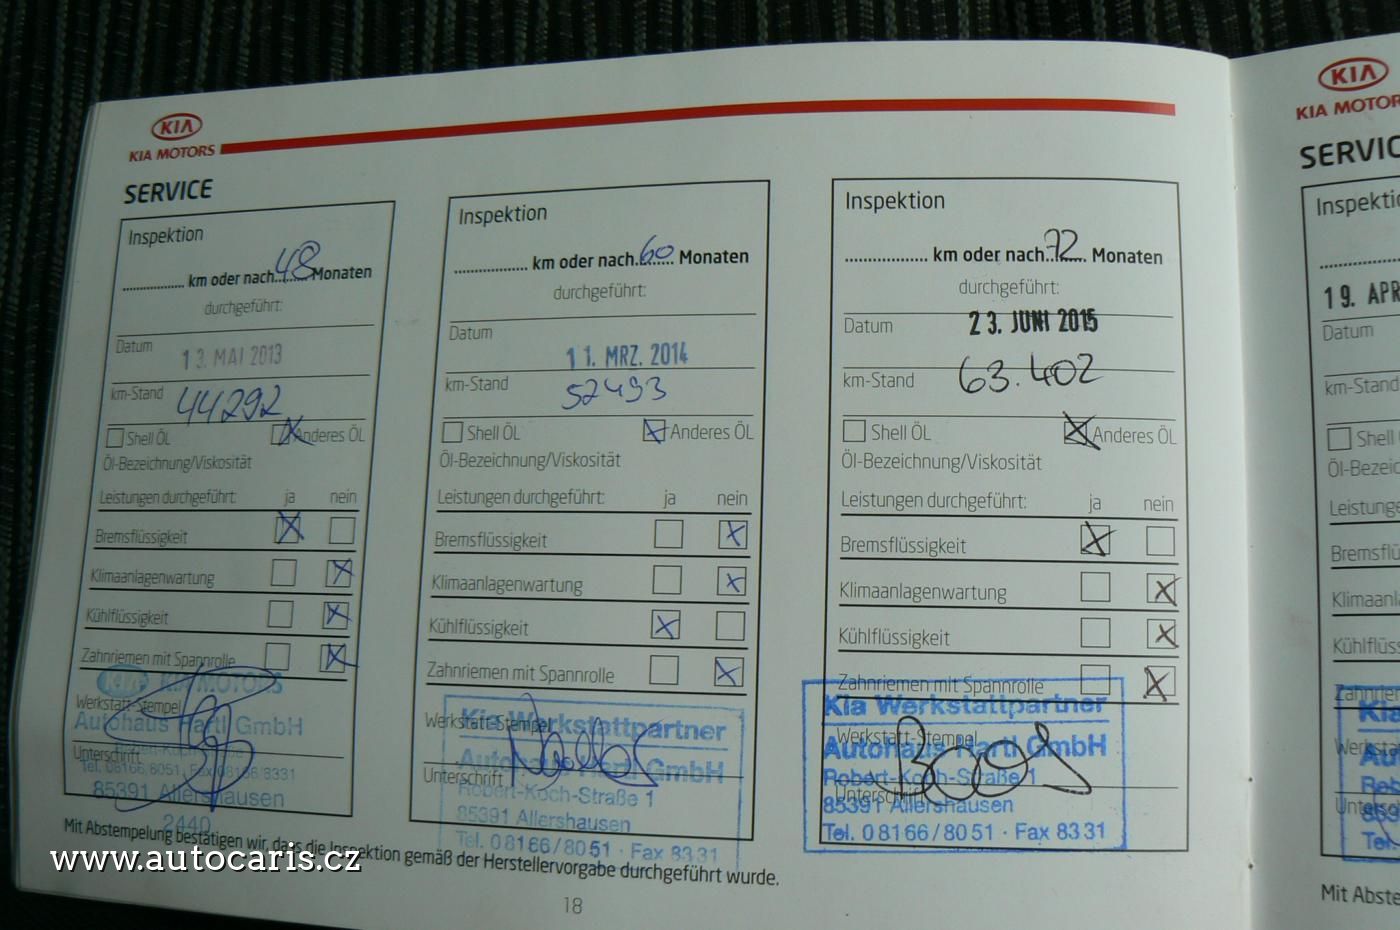 KIA
KIA MOTORS
SERVICE
Inspektion
.................. km oder nach 48 Monaten
durchgeführt:
Datum
13. MAI 2013
km-Stand
44292
Shell ÖL Anderes ÖL
Öl-Bezeichnung/Viskosität
Leistungen durchgeführt: ja nein
Bremsflüssigkeit
Klimaanlagenwartung
Kühlflüssigkeit
Zahnriemen mit Spannrolle
KIA KIA MOTORS
Werkstatt-Stempel
Autohaus Hartl GmbH
Robert-Koch-Straße
Unterschrift
Tel. 08166/8051, Fax 08166/8331
85391 Allershausen
2440
Inspektion
.................. km oder nach 60 Monaten
durchgeführt:
Datum
11. MRZ. 2014
km-Stand
52493
Shell ÖL Anderes ÖL
Öl-Bezeichnung/Viskosität
Leistungen durchgeführt: ja nein
Bremsflüssigkeit
Klimaanlagenwartung
Kühlflüssigkeit
Zahnriemen mit Spannrolle
Kia Werkstattpartner
Werkstatt-Stempel
Autohaus Hartl GmbH
Unterschrift
Robert-Koch-Straße 1
85391 Allershausen
Tel. 08166/8051 · Fax 8331
Inspektion
.................. km oder nach 72 Monaten
durchgeführt:
Datum
23. JUNI 2015
km-Stand
63.402
Shell ÖL Anderes ÖL
Öl-Bezeichnung/Viskosität
Leistungen durchgeführt: ja nein
Bremsflüssigkeit
Klimaanlagenwartung
Kühlflüssigkeit
Zahnriemen mit Spannrolle
Kia Werkstattpartner
Werkstatt-Stempel
Autohaus Hartl GmbH
Robert-Koch-Straße 1
Unterschrift
85391 Allershausen
Tel. 08166/8051 · Fax 8331
Mit Abstempelung bestätigen wir, dass die Inspektion gemäß der Herstellervorgabe durchgeführt wurde.
www.autocaris.cz
18
KIA
KIA MOTORS
SERVIC
Inspekti
19. APR
Datum
km-Stand
Shell
Öl-Bezeic
Leistunge
Bremsflü
Klimaanla
Kühlflüss
Zahnrieme
Kia
Werksta
Aut
Rob
Untersc
853
Tel.
Mit Abste